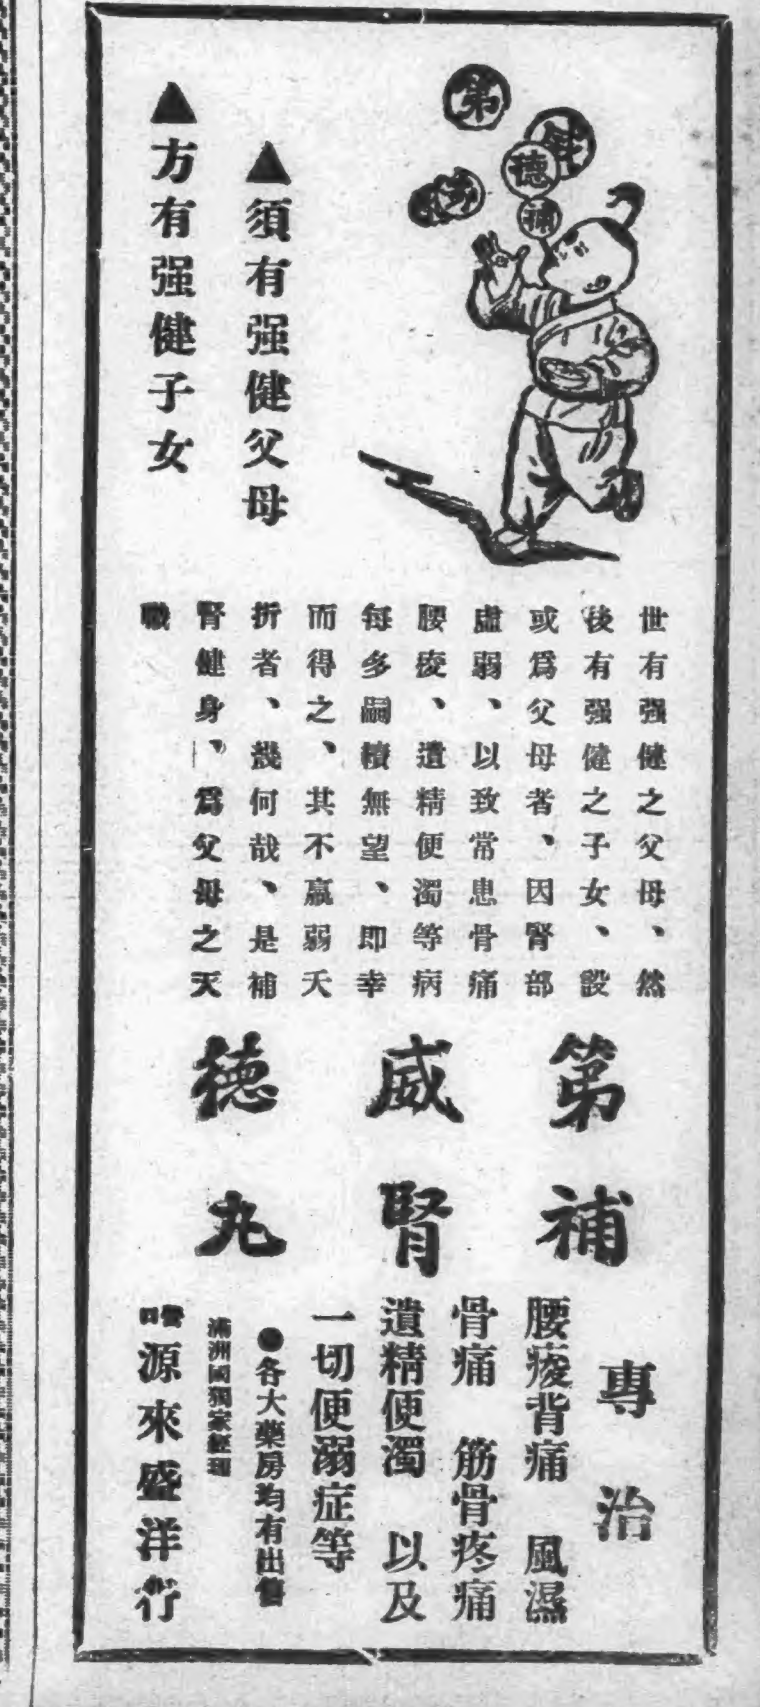 第
威
德
補
▲須有强健父母
▲方有强健子女
世有强健之父母、然
後有强健之子女、設
或爲父母者、因腎部
虛弱、以致常患骨痛
腰痠、遺精便濁等病
每多嗣續無望、即幸
而得之、其不羸弱夭
折者、幾何哉、是補
腎健身、爲父母之天
職
第威德
補腎丸
專治
腰痠背痛 風濕
骨痛 筋骨疼痛
遺精便濁 以及
一切便溺症等
●各大藥房均有出售
滿洲國獨家經理
營口
源來盛洋行